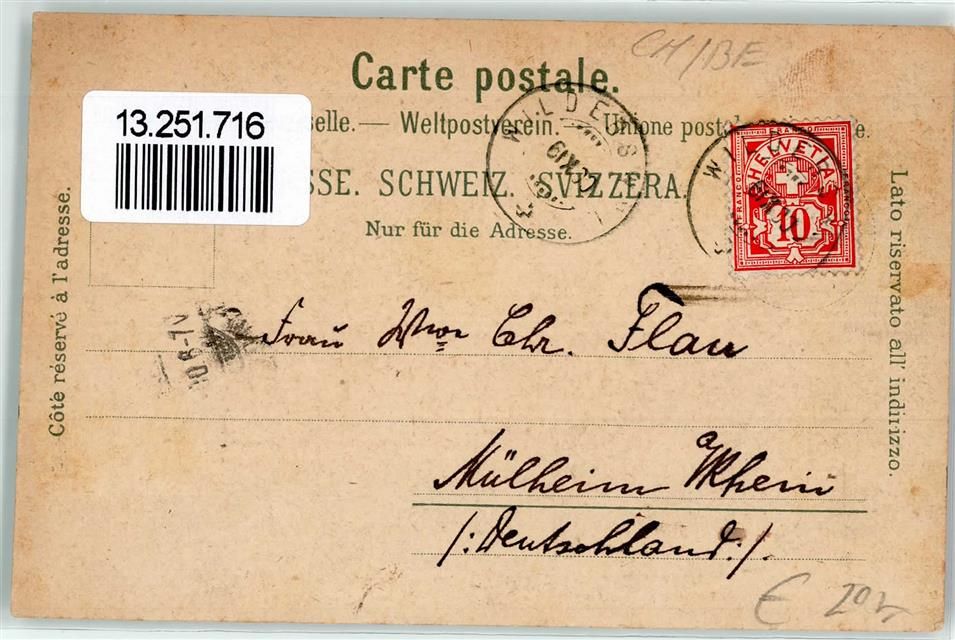 CH/BE
Carte postale.
13.251.716
selle. — Weltpostverein. — Unione postale
SSE. SCHWEIZ. SVIZZERA.
Nur für die Adresse.
Côté réservé à l'adresse.
Lato riservato all' indirizzo.
WILDE
HELVETIA
FRANCO
10
Frau Wwe Chr. Flau
Mülheim a/Rhein
/:Deutschland:/.